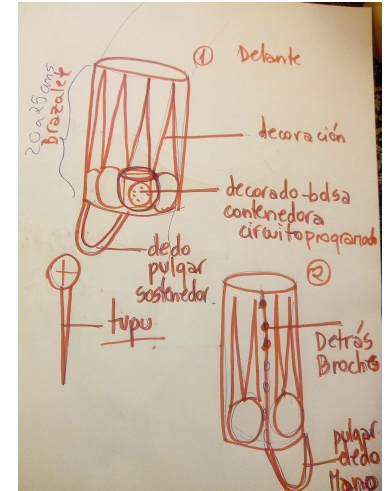 ① Delante
20 a 25 cms.
Brazalete
decoración
decorado-bolsa
contenedora
circuito programado
dedo
pulgar
sostenedor
tupu
②
Detrás
Broches
pulgar
dedo
Mano